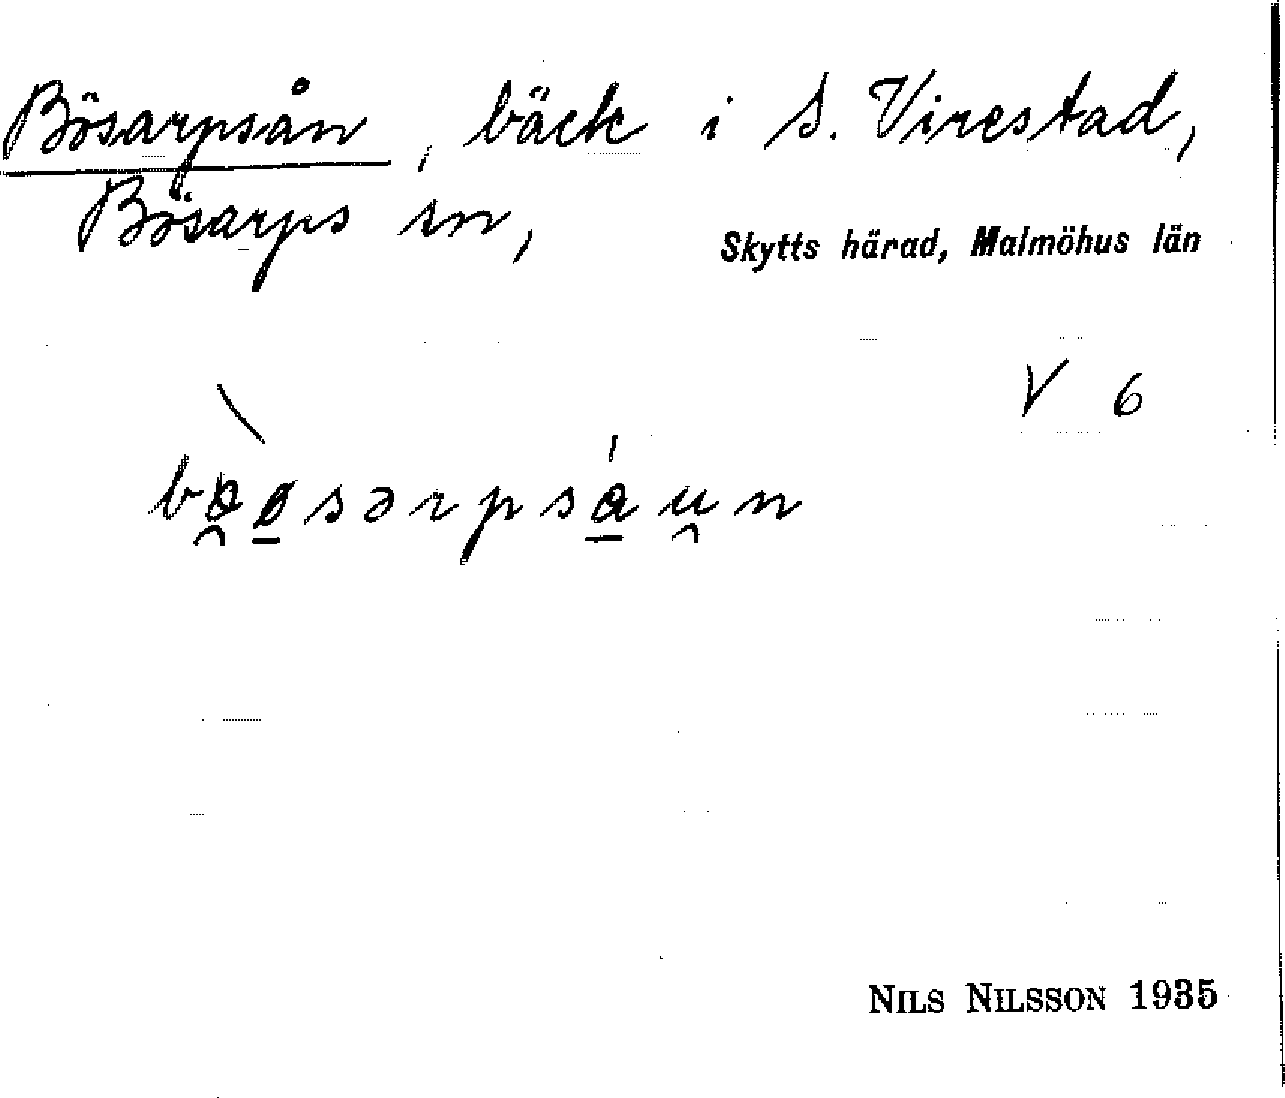 Bösarpsån, bäck i S. Virestad,
Bösarps sn,
Skytts härad, Malmöhus län
V 6
bɵ̯øsərpsáu̯n
NILS NILSSON 1935